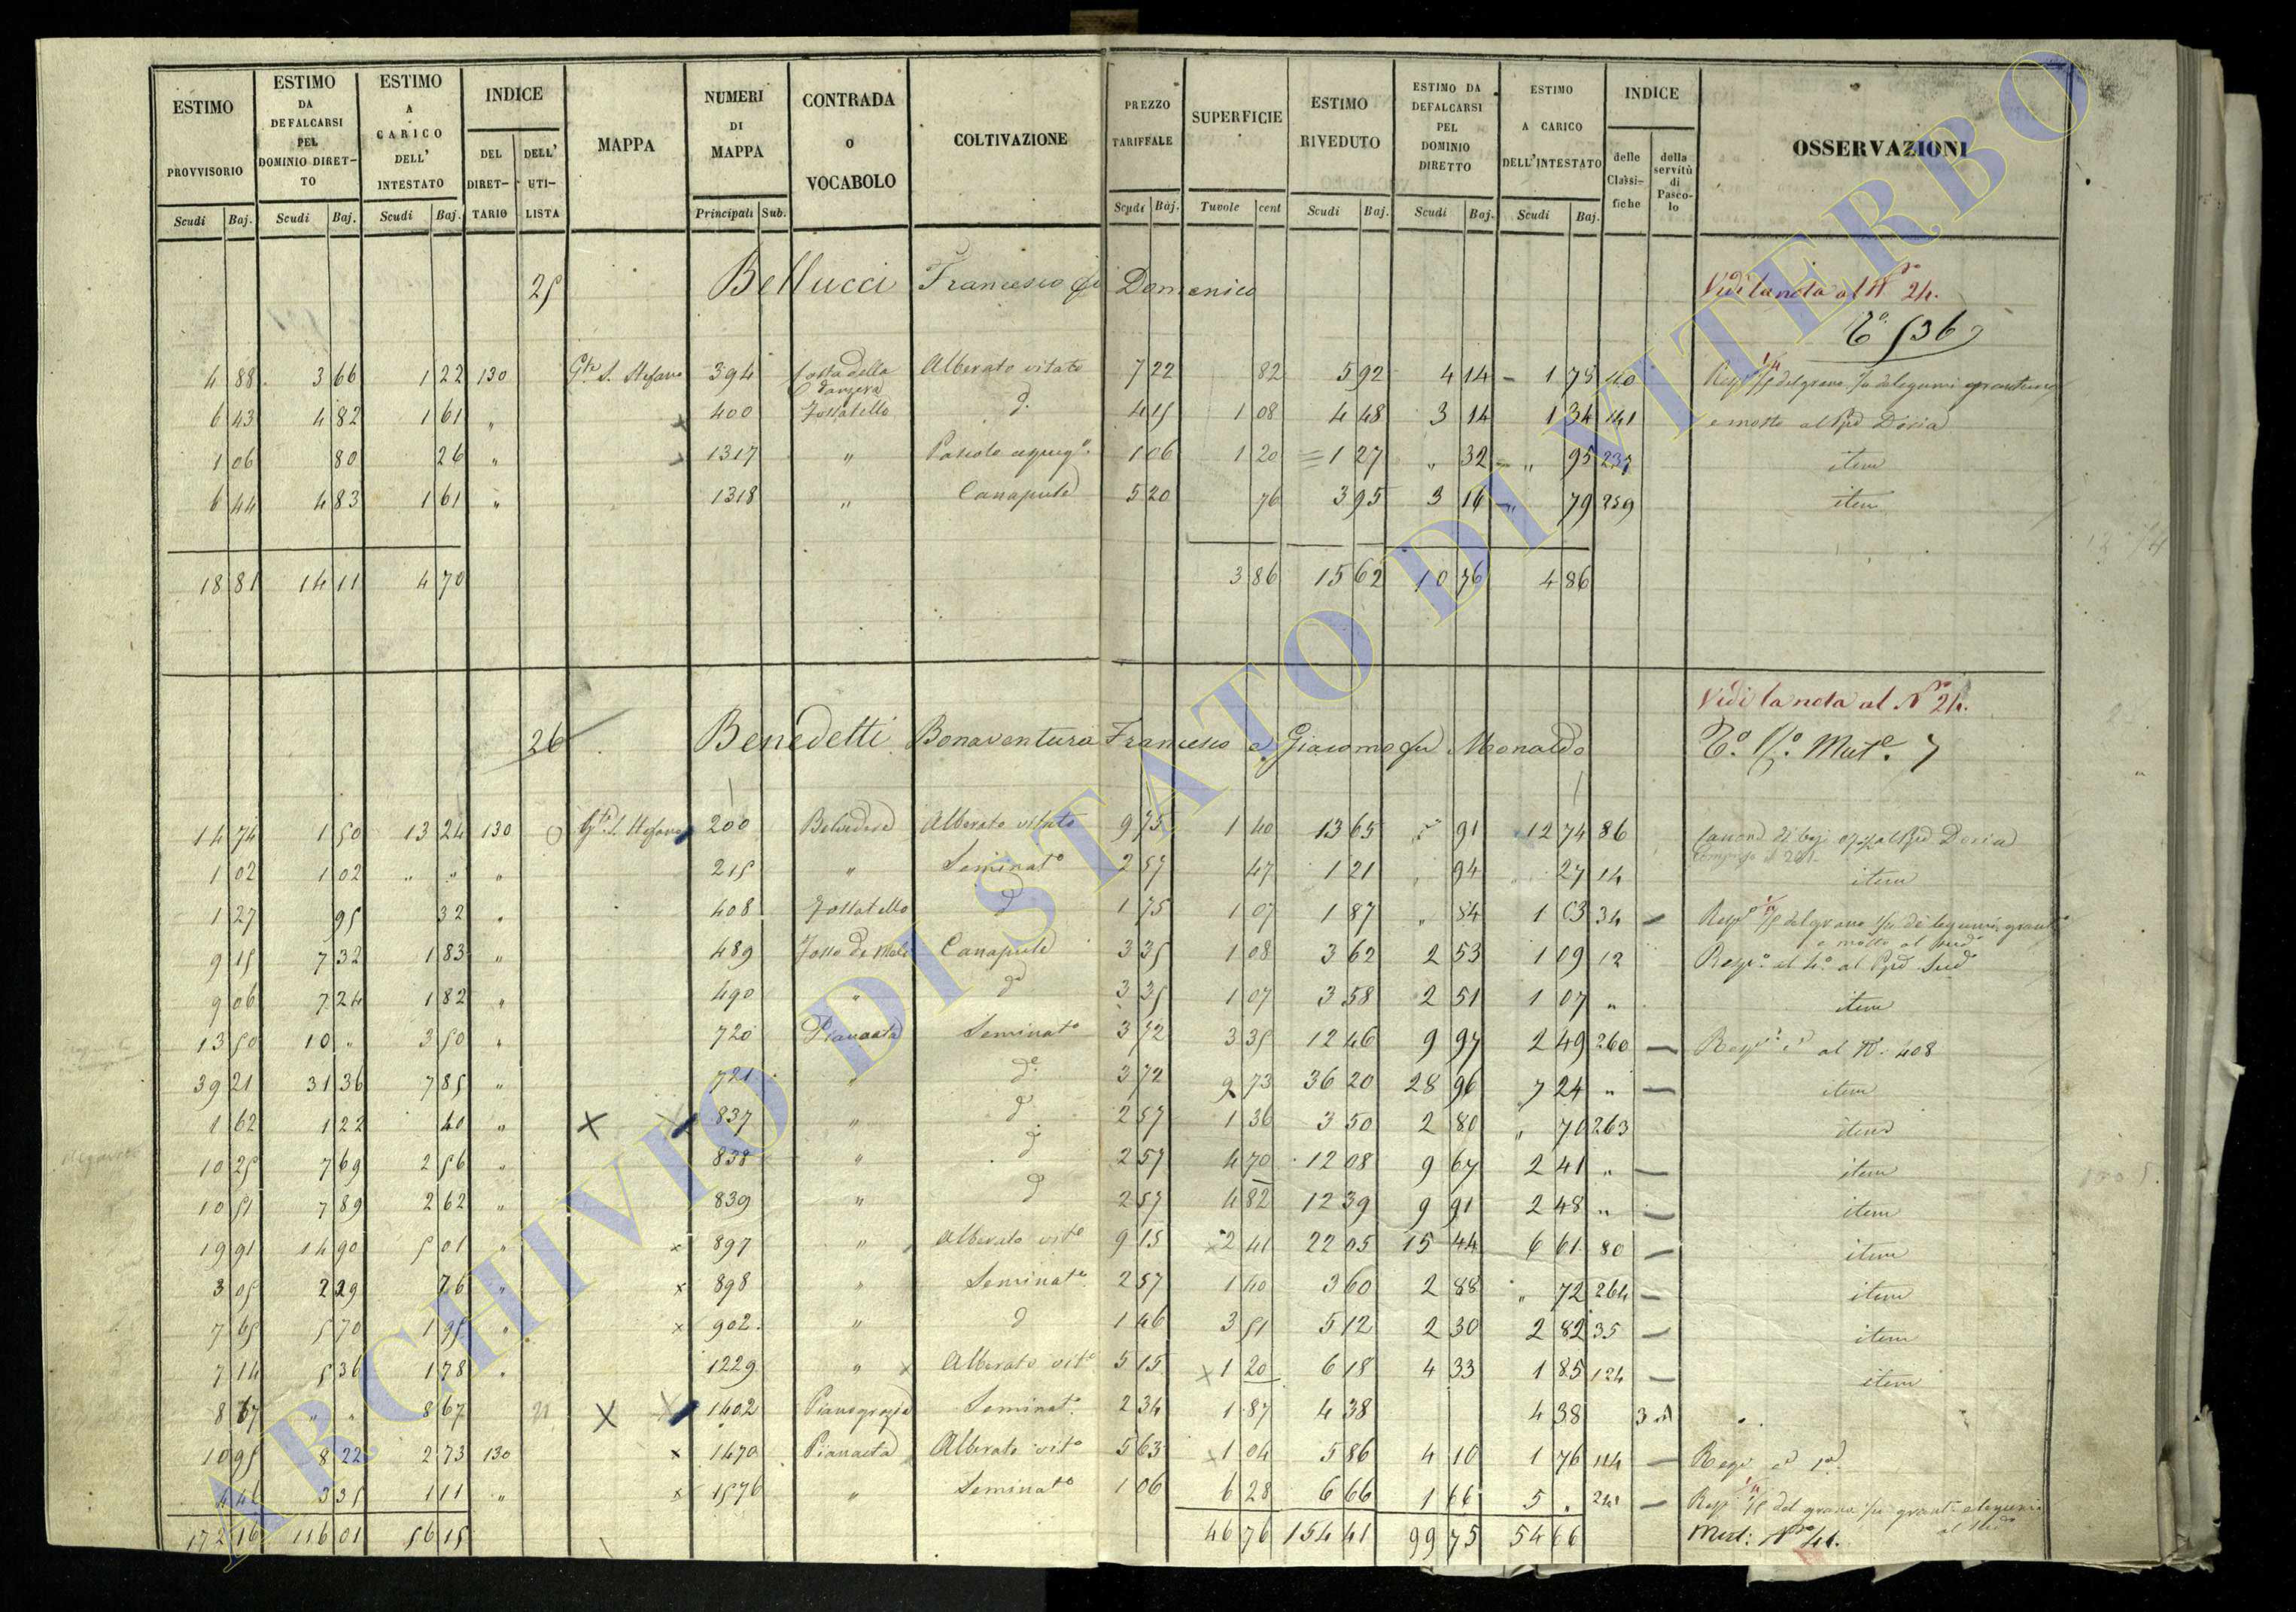 ESTIMO PROVVISORIO Scudi Baj.
ESTIMO DA DEFALCARSI PEL DOMINIO DIRETTO Scudi Baj.
ESTIMO A CARICO DELL' INTESTATO Scudi Baj.
INDICE DEL DIRET-TARIO DELL' UTI-LISTA
MAPPA
NUMERI DI MAPPA Principali Sub.
CONTRADA o VOCABOLO
COLTIVAZIONE
PREZZO TARIFFALE Scudi Baj.
SUPERFICIE Tavole cent
ESTIMO RIVEDUTO Scudi Baj.
ESTIMO DA DEFALCARSI PEL DOMINIO DIRETTO Scudi Baj.
ESTIMO A CARICO DELL'INTESTATO Scudi Baj.
INDICE delle Classi-fiche della servitù di Pasco-lo
OSSERVAZIONI
25 Bellucci Francesco fu Domenico Vidi la nota al N° 24.
536
4 88 3 66 1 22 130 S. Stefano 394 Costa della Alberato vitato 7 22 82 5 92 4 14 1 78 40
6 43 4 82 1 61 " 400 Fossatello d. 4 15 1 08 4 48 3 14 1 34 141 e mosto al Doria
1 06 80 26 " 1317 " Pascolo 1 06 1 20 1 27 " 32 " 95 237 item
6 44 4 83 1 61 " 1318 " Canapule 5 20 76 3 95 3 16 " 79 259 item
18 81 14 11 4 70 3 86 15 62 10 76 4 86
Vidi la nota al N° 24.
26 Benedetti Bonaventura Francesco e Giacomo fu Monaldo Mut.e 7
14 74 1 50 13 24 130 S. Stefano 200 Belvedere Alberato vitato 9 75 1 40 13 65 " 91 12 74 86 Doria
1 02 1 02 " " " 215 " Seminat° 2 57 47 1 21 94 27 14 item
1 27 95 32 " 408 Fossatello d 1 75 1 07 1 87 " 84 1 03 34
9 15 7 32 1 83 " 489 Fosso Canapule 3 35 1 08 3 62 2 53 1 09 12
9 06 7 24 1 82 " 490 " d° 3 35 1 07 3 58 2 51 1 07 " item
13 50 10 " 3 50 " 720 Pianaeta Seminat° 3 72 3 35 12 46 9 97 2 49 260 al N. 408
39 21 31 36 7 85 " 721 " d° 3 72 9 73 36 20 28 96 7 24 " item
1 62 1 22 40 " X 837 " d 2 57 1 36 3 50 2 80 " 70 263 item
10 25 7 69 2 56 " 838 " d 2 57 4 70 12 08 9 67 2 41 " item
10 51 7 89 2 62 " 839 " d 2 57 4 82 12 39 9 91 2 48 " item
19 91 14 90 5 01 " x 897 " Alberato vit° 9 15 x 2 41 22 05 15 44 6 61 80 item
3 05 2 29 76 " x 898 " Seminat° 2 57 1 40 3 60 2 88 " 72 264 item
7 65 5 70 1 95 " x 902 " d 1 46 3 51 5 12 2 30 2 82 35 item
7 14 5 36 1 78 " 1229 " x Alberato vit° 5 15 x 1 20 6 18 4 33 1 85 124 item
8 67 " " 8 67 X 1402 Seminat° 2 34 1 87 4 38 4 38
10 95 8 22 2 73 130 x 1470 Pianaeta Alberato vit° 5 63 x 1 04 5 86 4 10 1 76 144
4 46 3 35 1 11 " x 1576 " Seminat° 1 06 6 28 6 66 1 66 5 "
172 16 116 01 56 15 46 76 154 41 99 75 54 66 Mut: N° 41.
ARCHIVIO DI STATO DI VITERBO